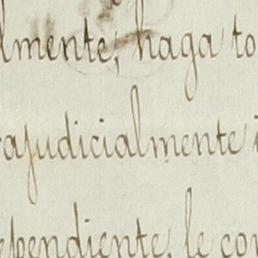 lmente, haga to
rajudicialmente i
ependiente, le con